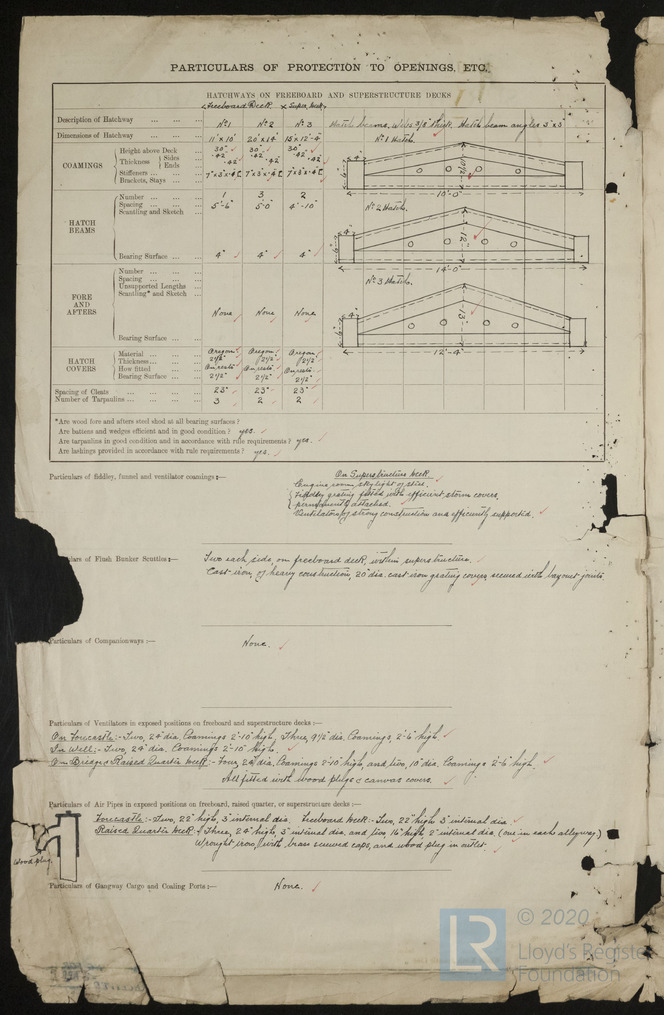 PARTICULARS OF PROTECTION TO OPENINGS, ETC.
HATCHWAYS ON FREEBOARD AND SUPERSTRUCTURE DECKS
Freeboard Deck × Super. Deck
Description of Hatchway ... ... ... Nº1 Nº2 Nº3 Hatch beams, webs 3/8" thick. Hatch beam angles 3"x3"
Dimensions of Hatchway ... ... ... 11'x10' 20'x14' 15'x12'-4" Nº1 Hatch.
COAMINGS
Height above Deck ... 30" 30" 30"
Thickness { Sides ... .42 .42 .42
Ends ... .42 .42 .42
Stiffeners ... ...
Brackets, Stays ... ...
10'-0"
HATCH BEAMS
Number ... ... ... 1 3 2
Spacing ... ... ... 5'-6" 5'-0" 4'-10"
Scantling and Sketch ...
Nº2 Hatch.
14'-0"
Bearing Surface ... ... 4" 4" 4"
FORE AND AFTERS
Number ... ... ...
Spacing ... ... ...
Unsupported Lengths
Scantling* and Sketch ...
None None None
Nº3 Hatch.
12'-4"
Bearing Surface ... ...
HATCH COVERS
Material ... ... ... Oregon Oregon Oregon
Thickness ... ... ... 2½" 2½" 2½"
How fitted ... ...
Bearing Surface ... ... 2½" 2½" 2½"
Spacing of Cleats ... ... ... ... 23" 23" 23"
Number of Tarpaulins ... ... ... ... 3 2 2
*Are wood fore and afters steel shod at all bearing surfaces?
Are battens and wedges efficient and in good condition? yes.
Are tarpaulins in good condition and in accordance with rule requirements? yes.
Are lashings provided in accordance with rule requirements? yes.
Particulars of fiddley, funnel and ventilator coamings:—
On Superstructure Deck
Engine room skylight of steel.
Fiddley grating fitted with efficient storm covers
permanently attached.
Ventilators of strong construction and efficiently supported.
Particulars of Flush Bunker Scuttles:—
Two each side on freeboard deck, within superstructure.
Cast iron, of heavy construction, 20" dia. cast iron grating covers, secured with bayonet joints.
Particulars of Companionways:—
None.
Particulars of Ventilators in exposed positions on freeboard and superstructure decks:—
On Forecastle:- Two, 24" dia. Coamings 2'-10" high, Three, 9½" dia, Coamings, 2'-6" high
In Well:- Two, 24" dia. Coamings 2'-10" high.
On Bridge & Raised Quarter Deck:- Four, 24" dia. Coamings 2'-10" high, and two, 10" dia, Coamings 2'-6" high.
All fitted with wood plugs & canvas covers.
Particulars of Air Pipes in exposed positions on freeboard, raised quarter, or superstructure decks:—
Forecastle:- Two, 22" high, 3" internal dia. Freeboard Deck:- Two, 22" high 3" internal dia
Raised Quarter Deck:- Three, 24" high, 3" internal dia. and two, 16" high 2" internal dia. (one in each alleyway)
Wrought iron, with brass screwed caps, and wood plug in outlet
Wood plug.
Particulars of Gangway Cargo and Coaling Ports:—
None.
LR
© 2020
Lloyd's Register
Foundation